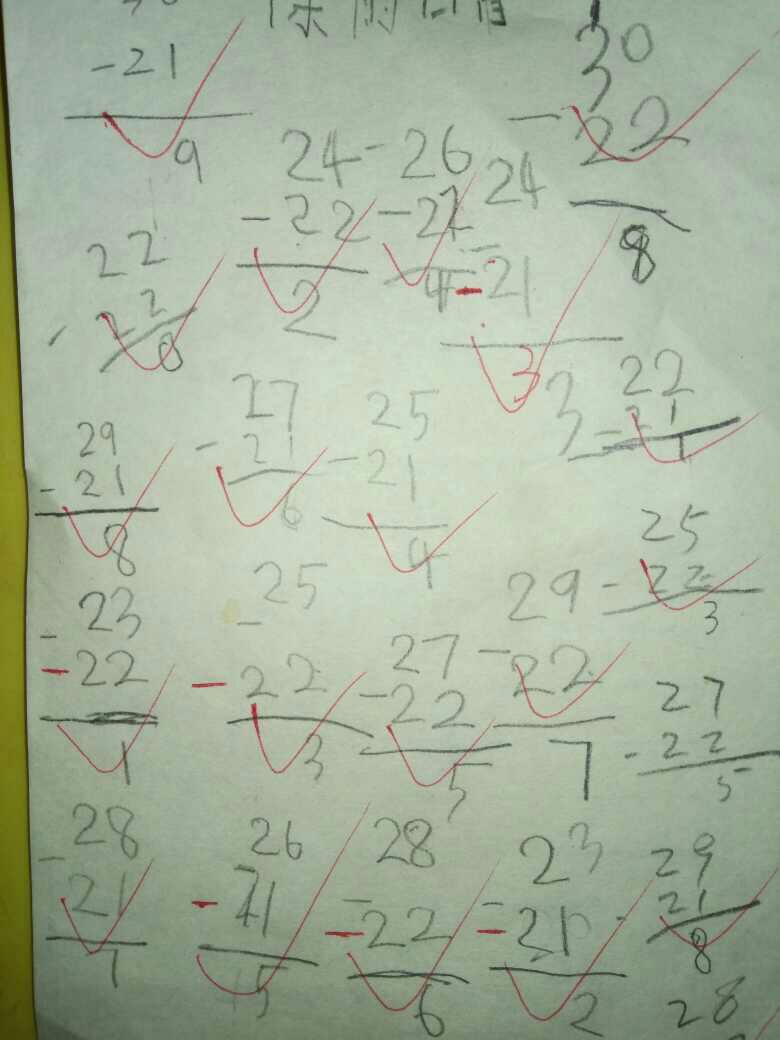 -21
9
30
- 22
8
24
- 22
2
26
-22
4
24
- 21
3
22
- 22
0
22
- 21
1
29
- 21
8
27
- 21
6
25
- 21
4
25
- 22
3
23
- 22
1
25
- 22
3
27
- 22
5
29
- 22
7
27
- 22
5
28
- 21
7
26
- 21
5
28
- 22
6
23
- 21
2
29
- 21
8
28